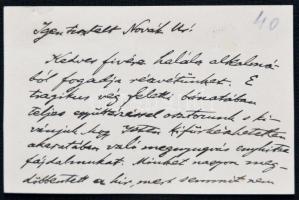 40
Igen tisztelt Novák Úr!
Kedves fivére halála alkalmá-
ból fogadja részvétünket. E
tragikus vég feletti bánatában
teljes együttérzéssel osztozunk s ki-
vánjuk hogy Isten kifürkészhetetlen
akaratában való megnyugvás enyhítse
fájdalmukat. Minket nagyon meg-
döbbentett a hír, mert semmit sem